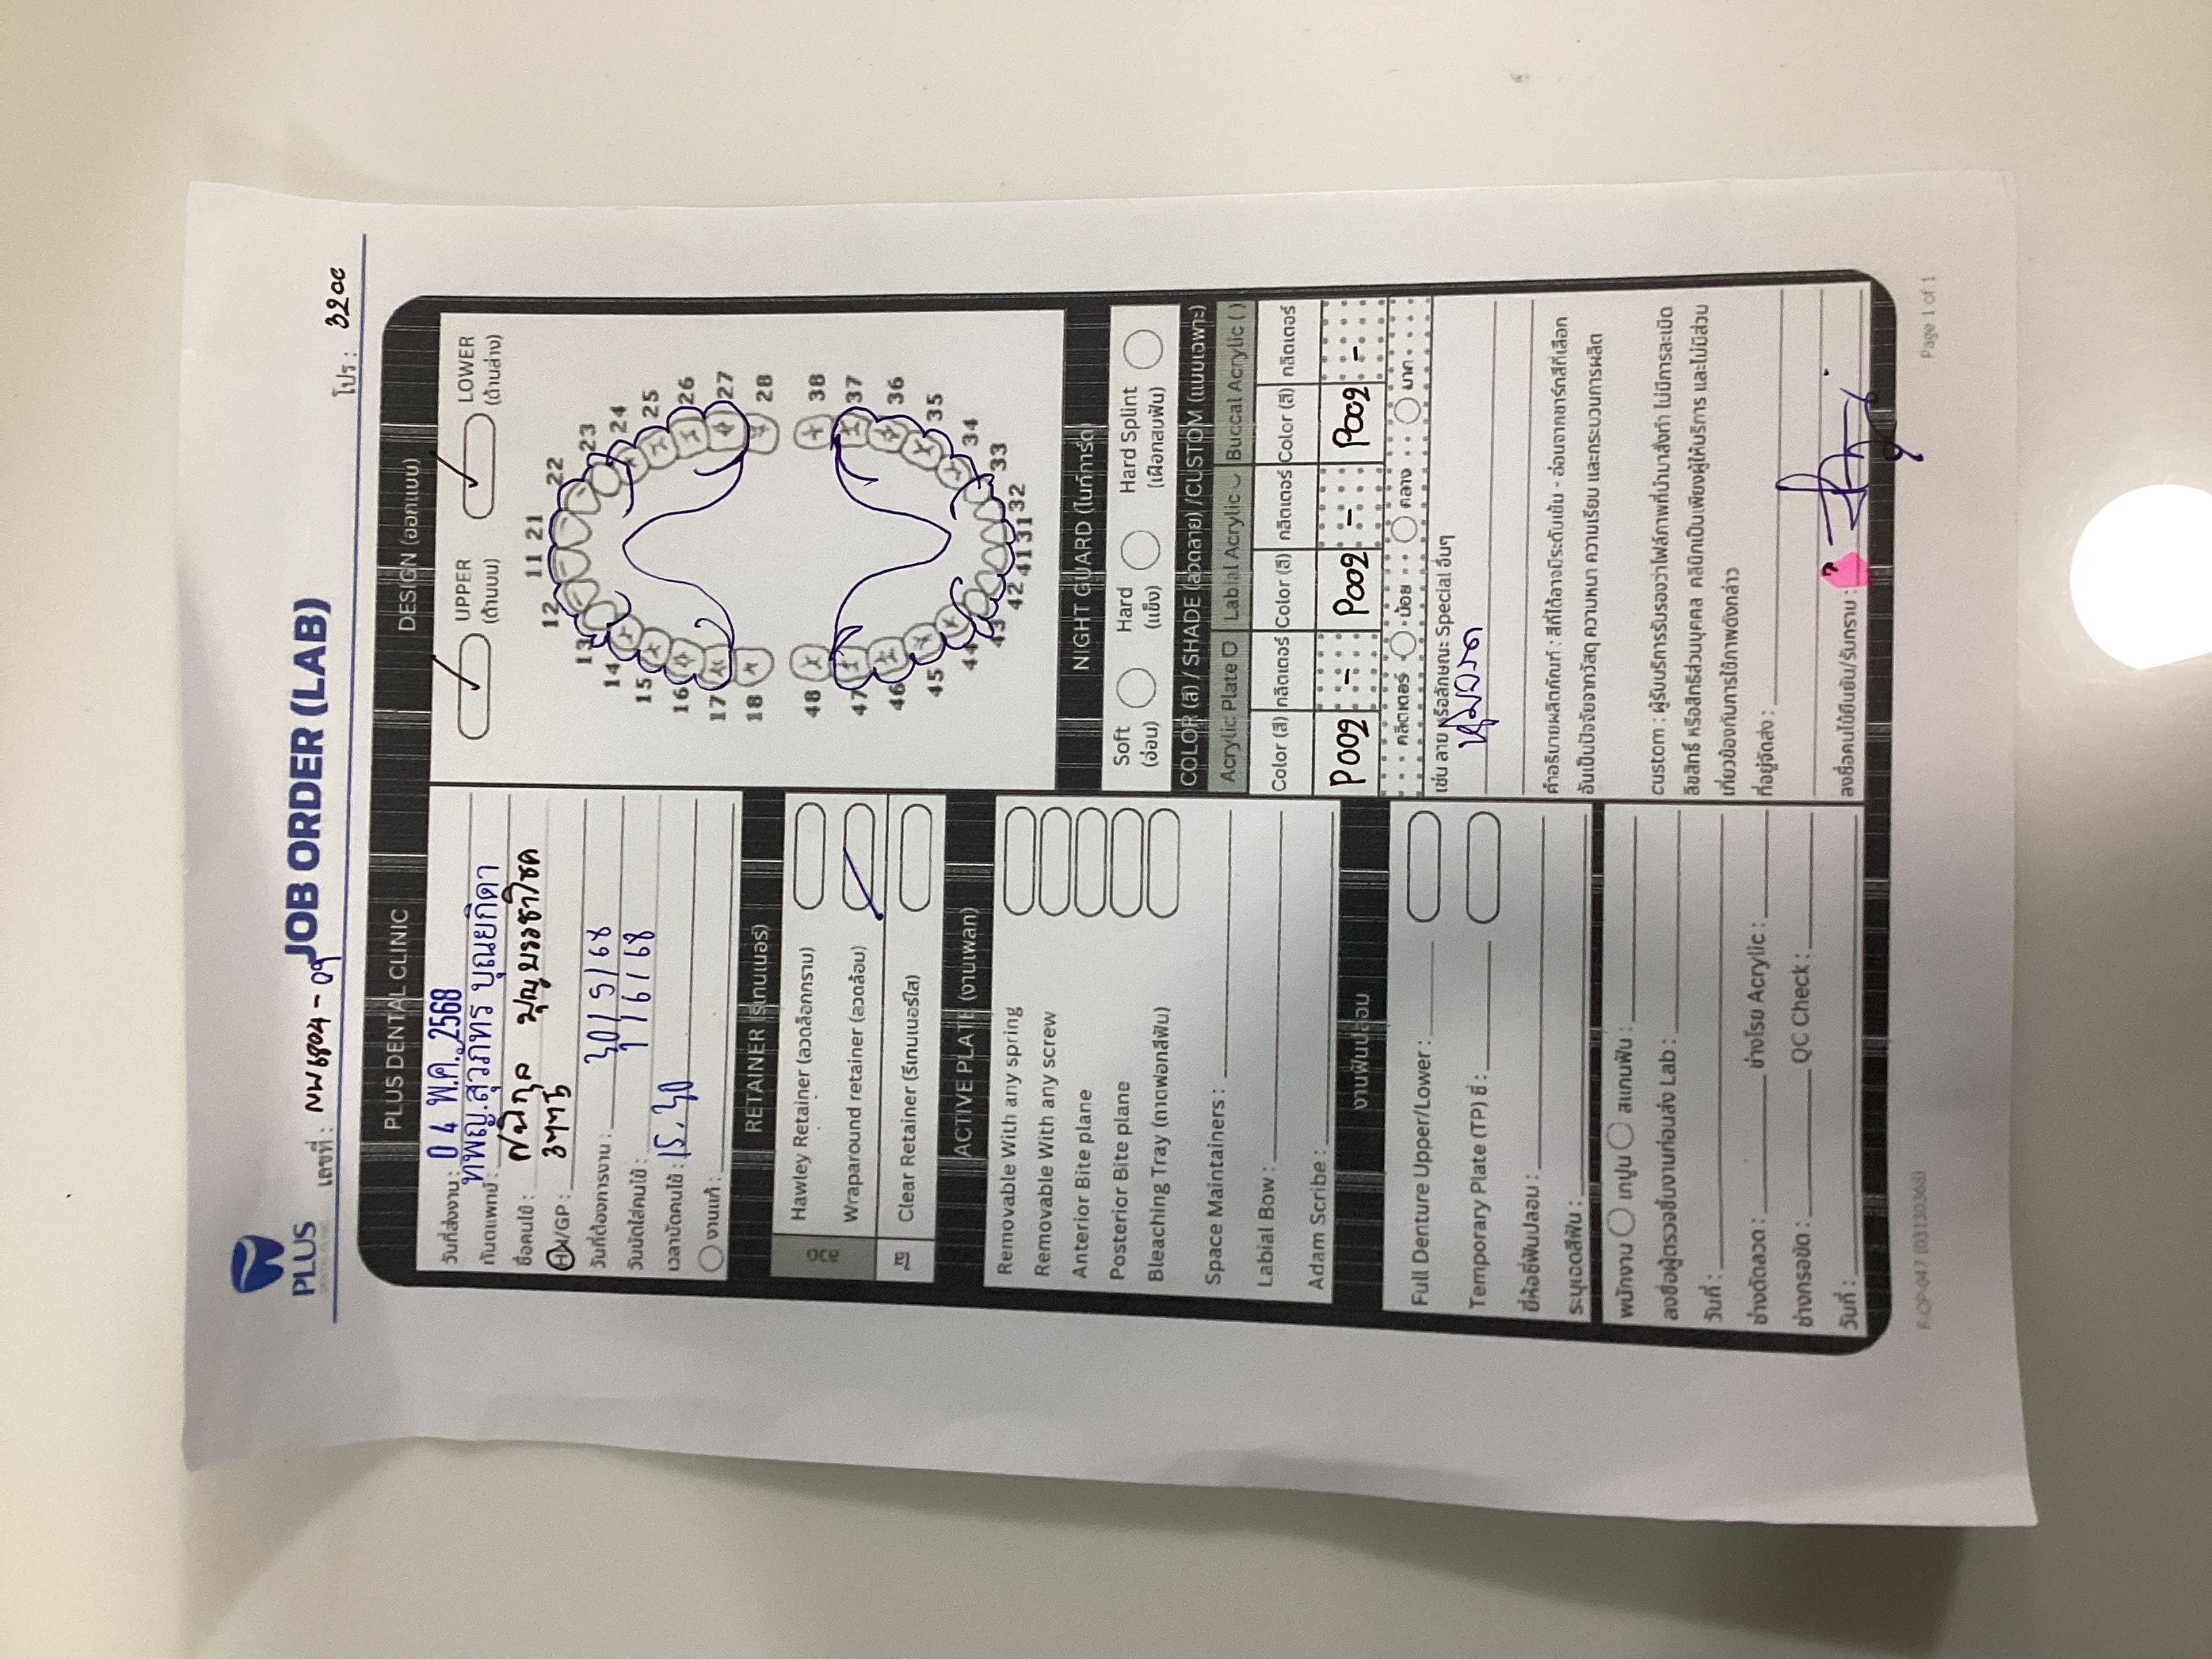 PLUS
DENTAL CLINIC
JOB ORDER (LAB)
เลขที่ : NW6804-09
โปร : 3200
PLUS DENTAL CLINIC
วันที่ส่งงาน : 04 พ.ค. 2568
ทันตแพทย์ : ทพญ.สุวภัทร บุณยกิดา
ชื่อคนไข้ : บุญบรรชาโชค
HN/GP : 3775
วันที่ต้องการงาน : 30/5/68
วันนัดใส่คนไข้ : 1/6/68
เวลานัดคนไข้ : 15.30
งานแก้ :
RETAINER (รีเทนเนอร์)
ลวด
Hawley Retainer (ลวดล็อกกราม)
Wraparound retainer (ลวดล้อม)
ใส
Clear Retainer (รีเทนเนอร์ใส)
ACTIVE PLATE (งานเพลท)
Removable With any spring
Removable With any screw
Anterior Bite plane
Posterior Bite plane
Bleaching Tray (ถาดฟอกสีฟัน)
Space Maintainers :
Labial Bow :
Adam Scribe :
งานฟันปลอม
Full Denture Upper/Lower :
Temporary Plate (TP) ซี่ :
ยี่ห้อซี่ฟันปลอม :
ระบุเฉดสีฟัน :
พนักงาน เทปูน สแกนฟัน :
ลงชื่อผู้ตรวจชิ้นงานก่อนส่ง Lab :
วันที่ :
ช่างดัดลวด : ช่างโรย Acrylic :
ช่างกรอขัด : QC Check :
วันที่ :
DESIGN (ออกแบบ)
UPPER (ด้านบน)
LOWER (ด้านล่าง)
11 21
12 22
13 23
14 24
15 25
16 26
17 27
18 28
48 38
47 37
46 36
45 35
44 34
43 33
42 41 31 32
NIGHT GUARD (ไนท์การ์ด)
Soft (อ่อน)
Hard (แข็ง)
Hard Splint (เฝือกสบฟัน)
COLOR (สี) / SHADE (ลวดลาย) /CUSTOM (แบบเฉพาะ)
Acrylic Plate Labial Acrylic Buccal Acrylic ( )
Color (สี) กลิตเตอร์ Color (สี) กลิตเตอร์ Color (สี) กลิตเตอร์
P002 - P002 - P002 -
กลิตเตอร์ น้อย กลาง มาก
เช่น ลาย หรือลักษณะ Special อื่นๆ
หุ้มลวด
คำอธิบายผลิตภัณฑ์ : สีที่ได้อาจมีระดับเข้ม - อ่อนจากชาร์ทสีที่เลือก
อันเป็นปัจจัยจากวัสดุ ความหนา ความเรียบ และกระบวนการผลิต
custom : ผู้รับบริการรับรองว่าไฟล์ภาพที่นำมาสั่งทำ ไม่มีการละเมิด
ลิขสิทธิ์ หรือสิทธิส่วนบุคคล คลินิกเป็นเพียงผู้ให้บริการ และไม่มีส่วน
เกี่ยวข้องกับการใช้ภาพดังกล่าว
ที่อยู่จัดส่ง :
ลงชื่อคนไข้ยืนยัน/รับทราบ :
F-OP-047 (03130368)
Page 1 of 1